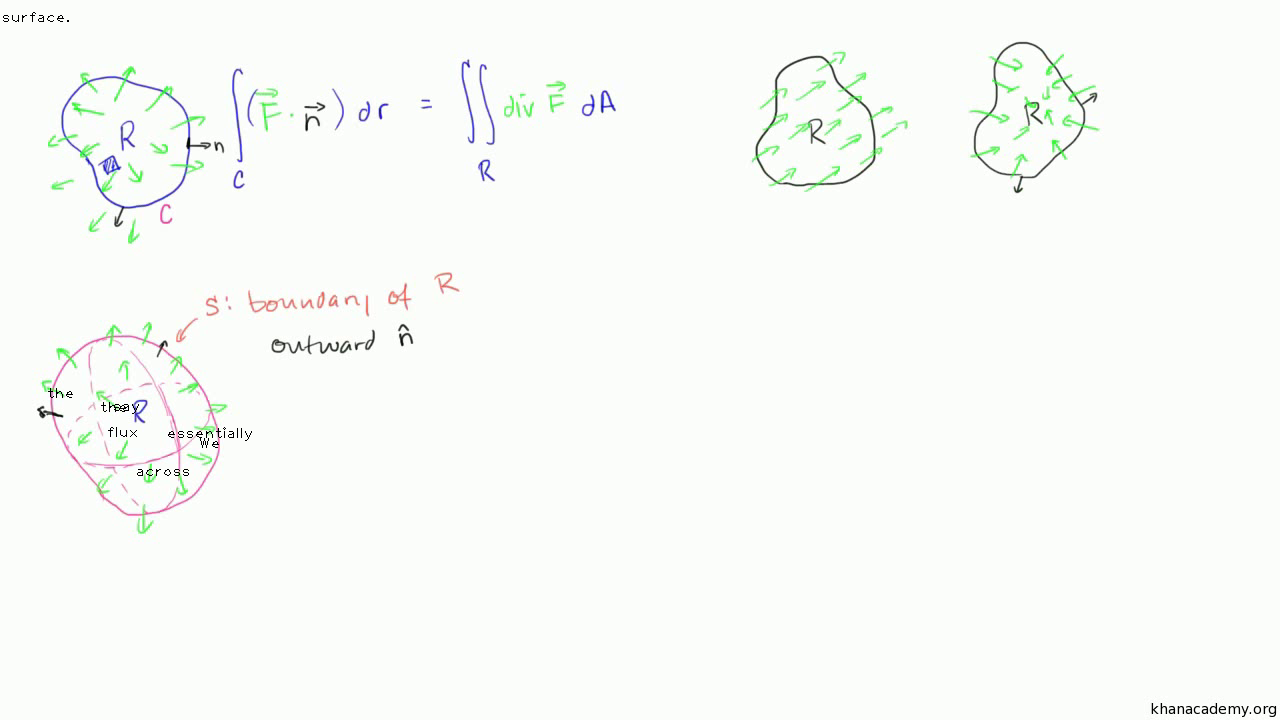 surface.
R
n
C
∫_C (F⃗ · n⃗) dr = ∬_R div F⃗ dA
R
R
S: boundary of R
outward n̂
the
they
R
flux
essentially
We
across
khanacademy.org